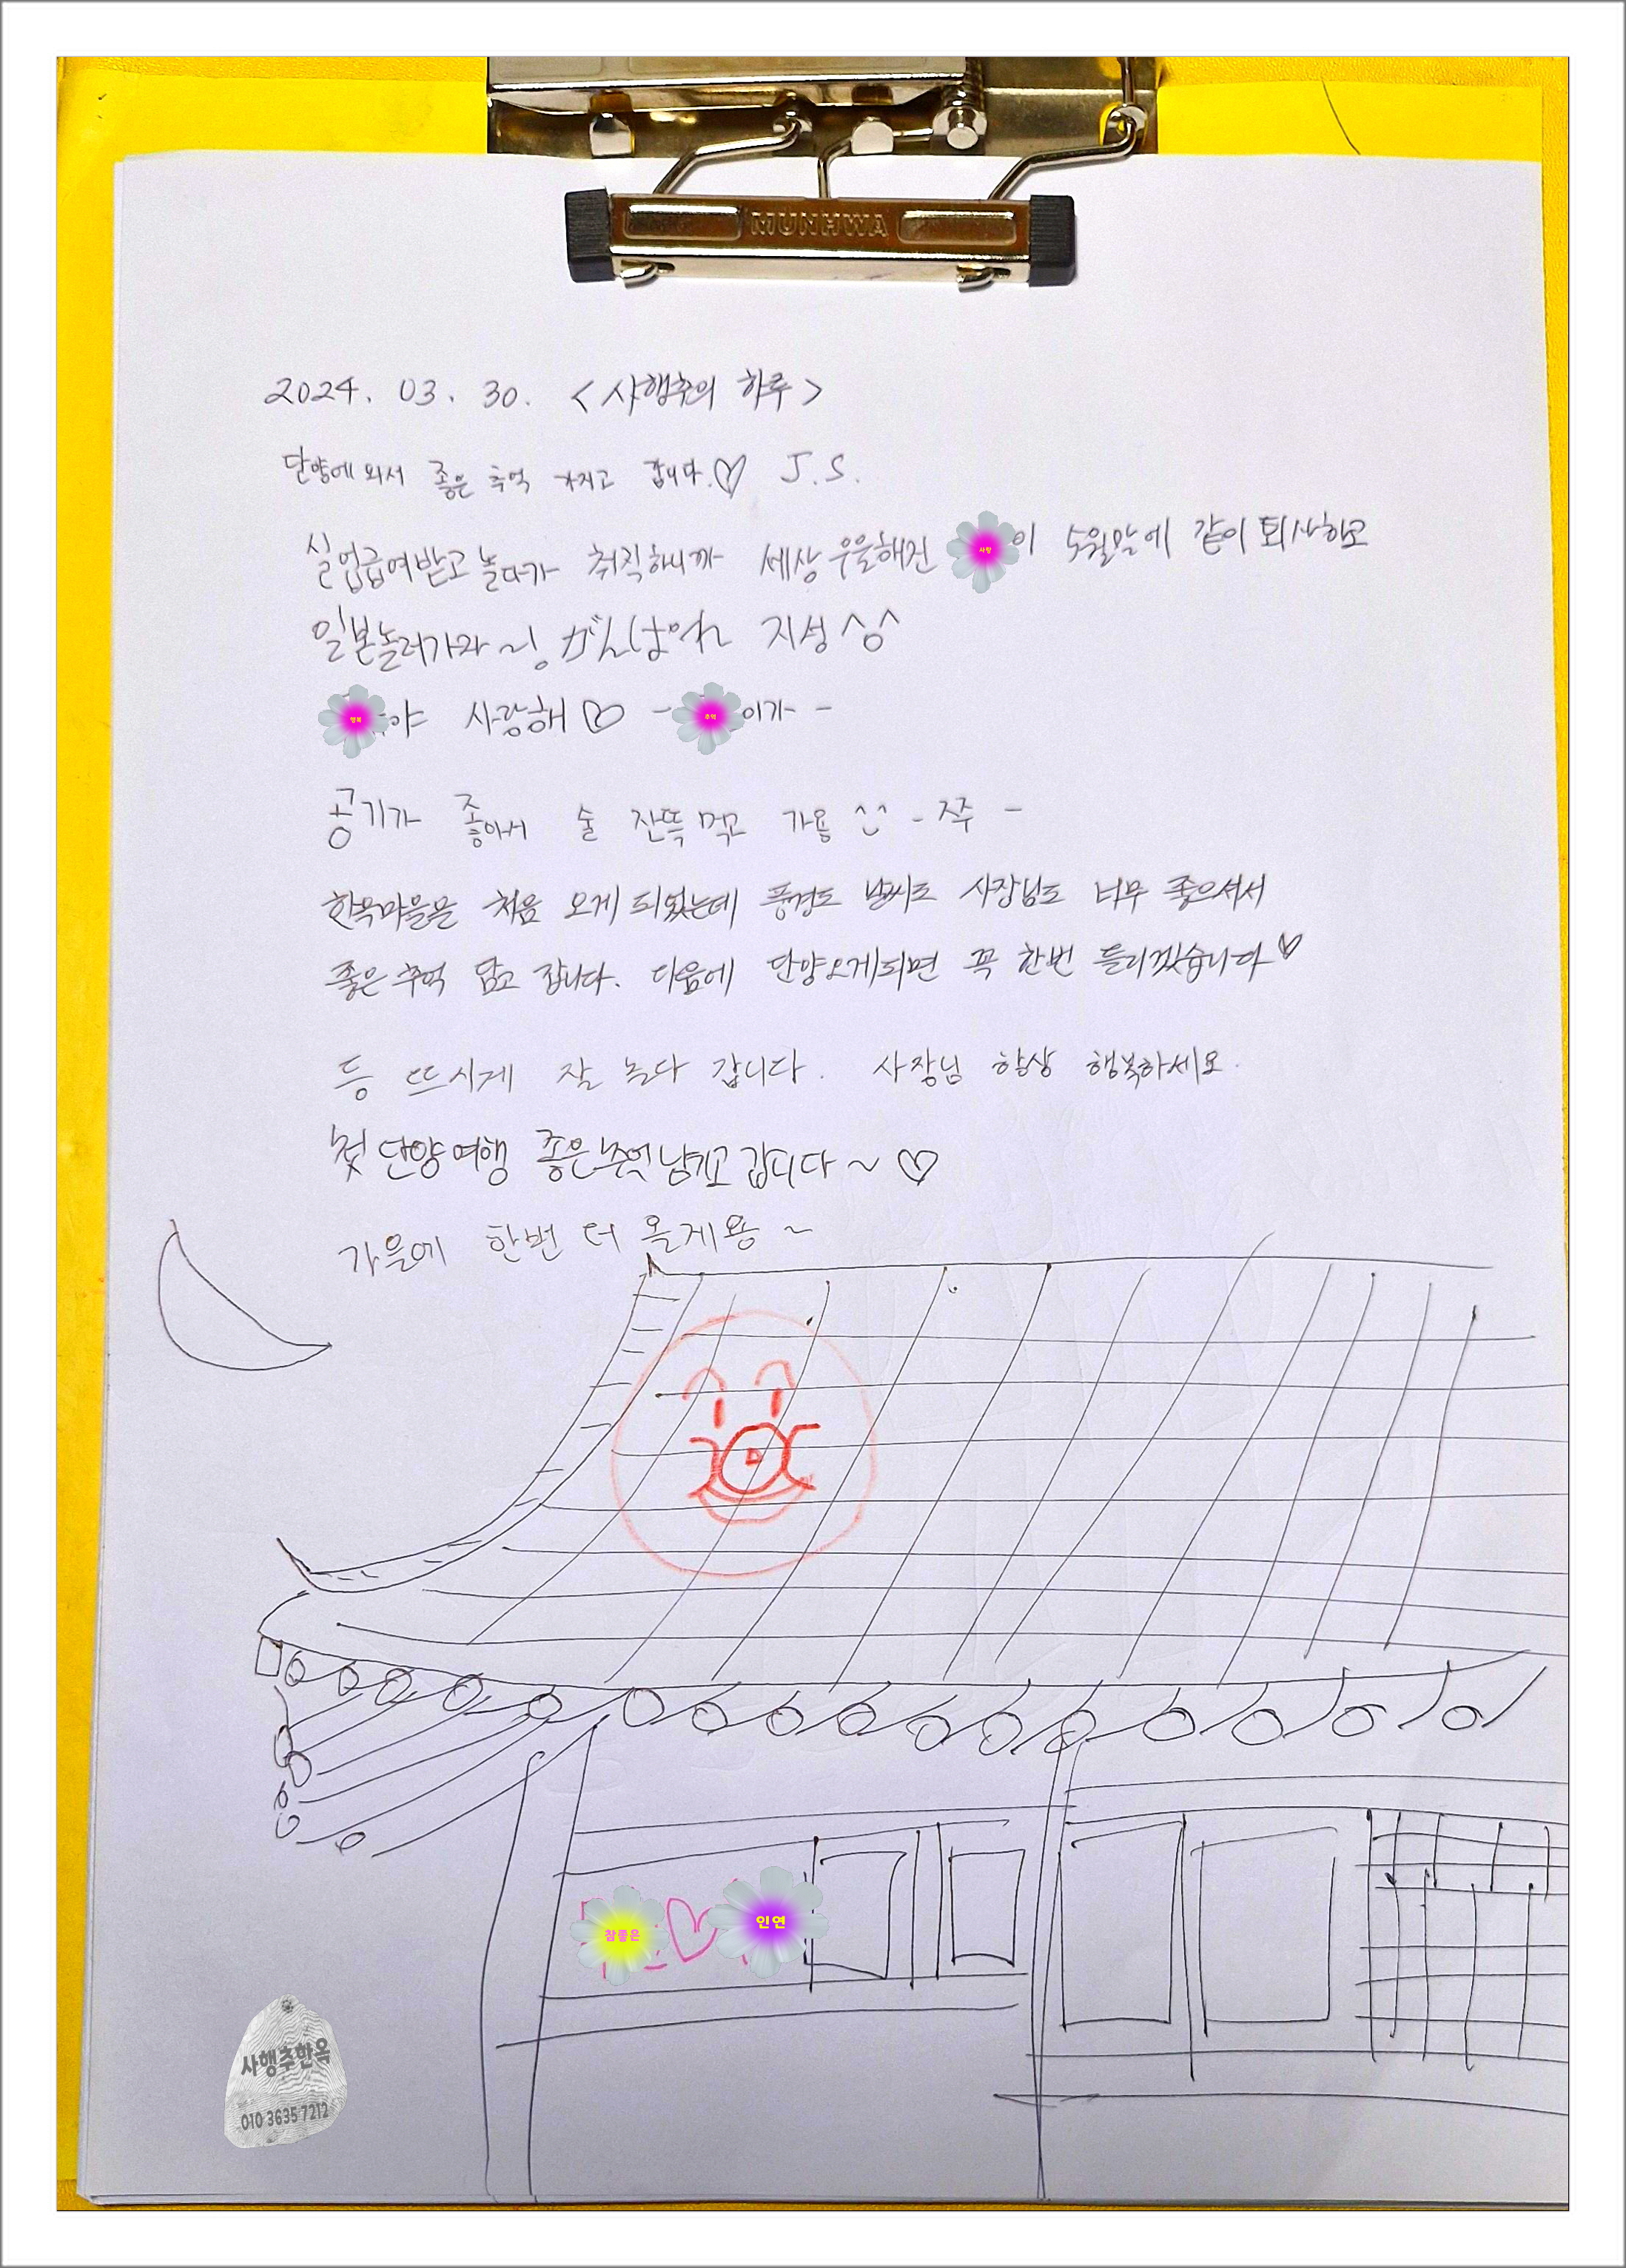 MUNHWA
2024. 03. 30. <사행추의 하루>
단양에 와서 좋은 추억 가지고 갑니다.♡ J.S.
실업급여받고 놀다가 취직하니까 세상 우울해진 사랑이 5월말에 같이 퇴사하고
일본놀러가자~! がんばれ 지성^^
행복야 사랑해♡ - 추억이가 -
공기가 좋아서 술 잔뜩 먹고 가용 ^^ - 쭈 -
한옥마을은 처음 오게 되었는데 풍경도 날씨도 사장님도 너무 좋으셔서
좋은 추억 담고 갑니다. 다음에 단양오게되면 꼭 한번 들리겠습니다♡
등 뜨시게 잘 놀다 갑니다. 사장님 항상 행복하세요.
첫 단양여행 좋은추억남기고갑니다~♡
가을에 한번 더 올게용~
참좋은 ♡ 인연
사행추한옥
010 3635 7212